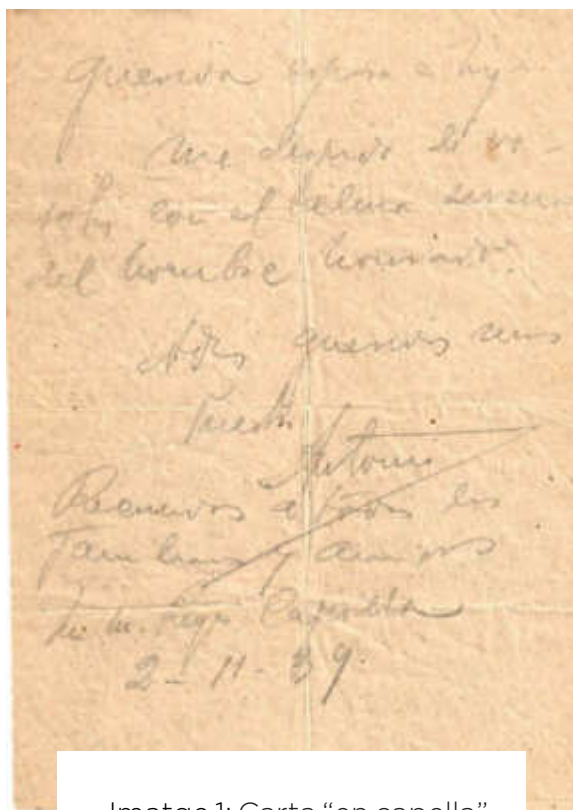 Querida esposa e hija.
Me despido de vo-
sotras con el alma serena
del hombre honrado.
Adios queridas mias
Vuestro
Antonio
Recuerdos a todos los
familiares y amigos
Capilla
2-11-39.
Imatge 1: Carta "en capella"